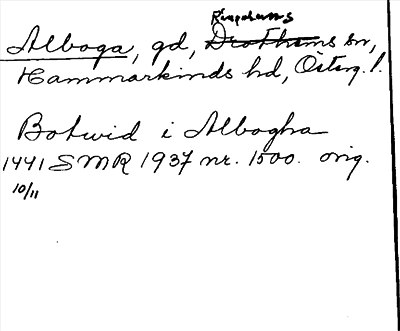 Ringarums
Alboga, gd, Drothems sn,
Hammarkinds hd, Österg.l.
Botwid i Albogha
1441 SMR 1937 nr. 1500. orig.
10/11